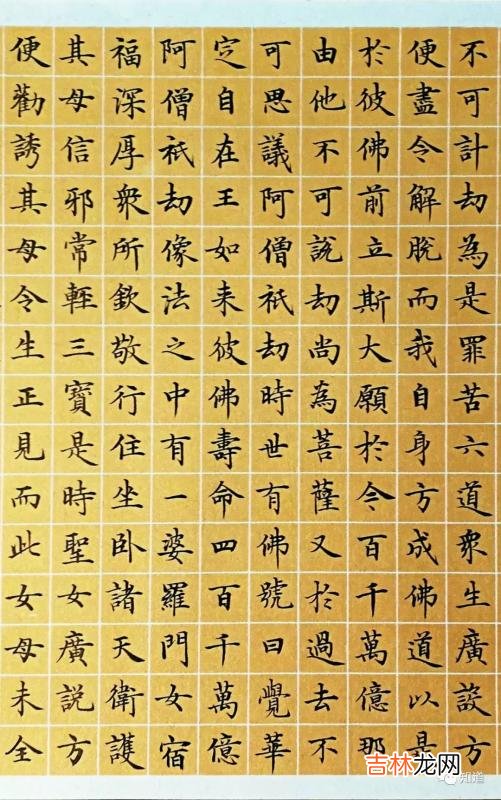 不可計劫為是罪苦六道衆生廣設方
便盡令解脫而我自身方成佛道以是
於彼佛前立斯大願於今百千萬億那
由他不可說劫尚為菩薩又於過去不
可思議阿僧祇劫時世有佛號曰覺華
定自在王如来彼佛壽命四百千萬億
阿僧祇劫像法之中有一婆羅門女宿
福深厚衆所欽敬行住坐卧諸天衛護
其母信邪常輕三寶是時聖女廣說方
便勸誘其母令生正見而此女母未全
知道
吉林龙网